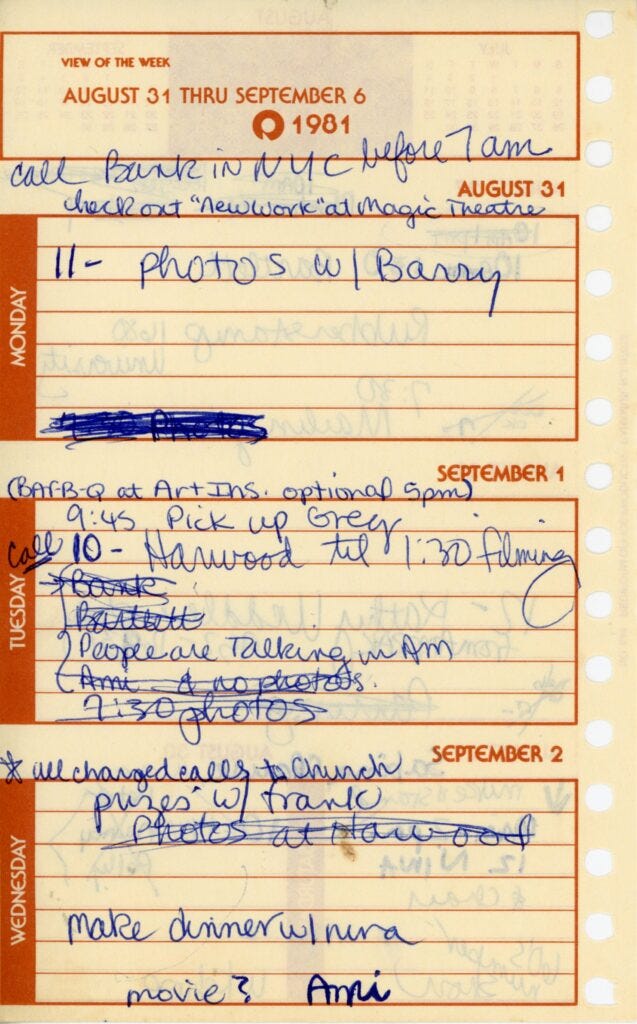 VIEW OF THE WEEK
AUGUST 31 THRU SEPTEMBER 6
1981
call Bank in NYC before 7am
AUGUST 31
check out "New Work" at Magic Theatre
MONDAY
11- photos w/ Barry
Photos
SEPTEMBER 1
(BAR-B-Q at Art Ins. optional 5pm)
TUESDAY
9:45 Pick up Greg
call 10- Harwood til 1:30 filming
Bank
Bartlett
People are Talking in AM
Ami & no photos.
7:30 photos
SEPTEMBER 2
* all changed calls to Church
WEDNESDAY
prizes w/ Frank
Photos at Harwood
make dinner w/ nina
movie? Ami